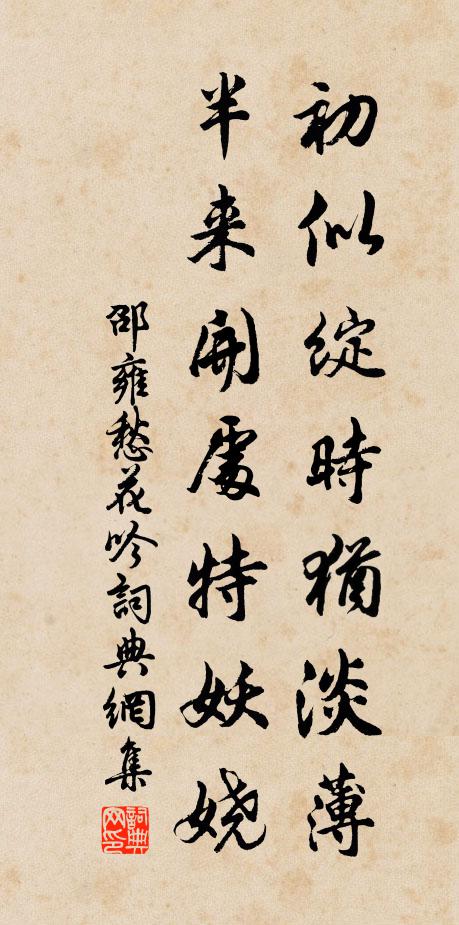 初似綻時猶淡薄
半来開處特妖嬈
邵雍愁花吟詞典網集
詞典网印